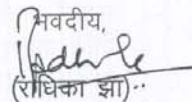 भवदीय,
(राधिका झा)..